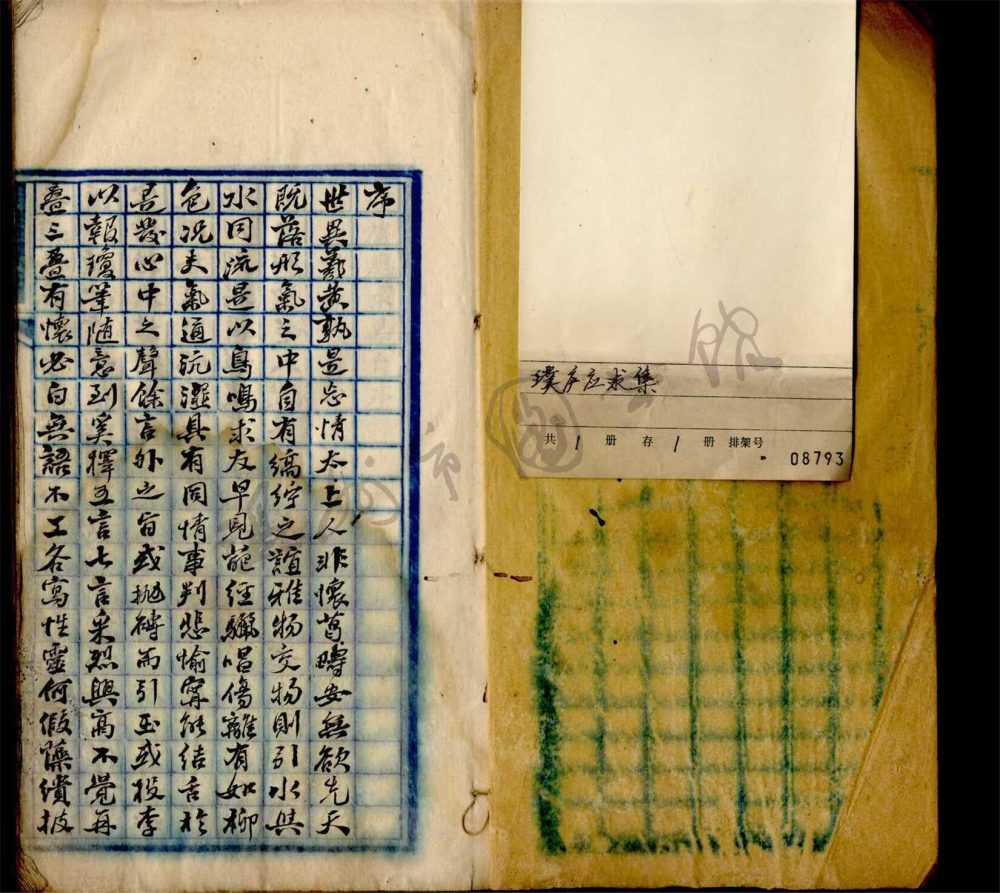 璞庐应求集
共 1 册 存 1 册 排架号
08793
序
世異羲黄孰是忘情太上人非懷葛疇安無欲先天
既落形氣之中自有縞紵之誼物交物則引水與
水同流是以鳥鳴求友早見葩經驪唱傷離有如柳
色况夫氣通沆瀣具有同情事判悲愉寧能結舌於
是發心中之聲餘言外之旨或拋磚而引玉或投李
以報瓊筆随意到奚擇五言七言采烈興高不覺再
叠三叠有懷必白無語不工各寫性靈何假藻繢披